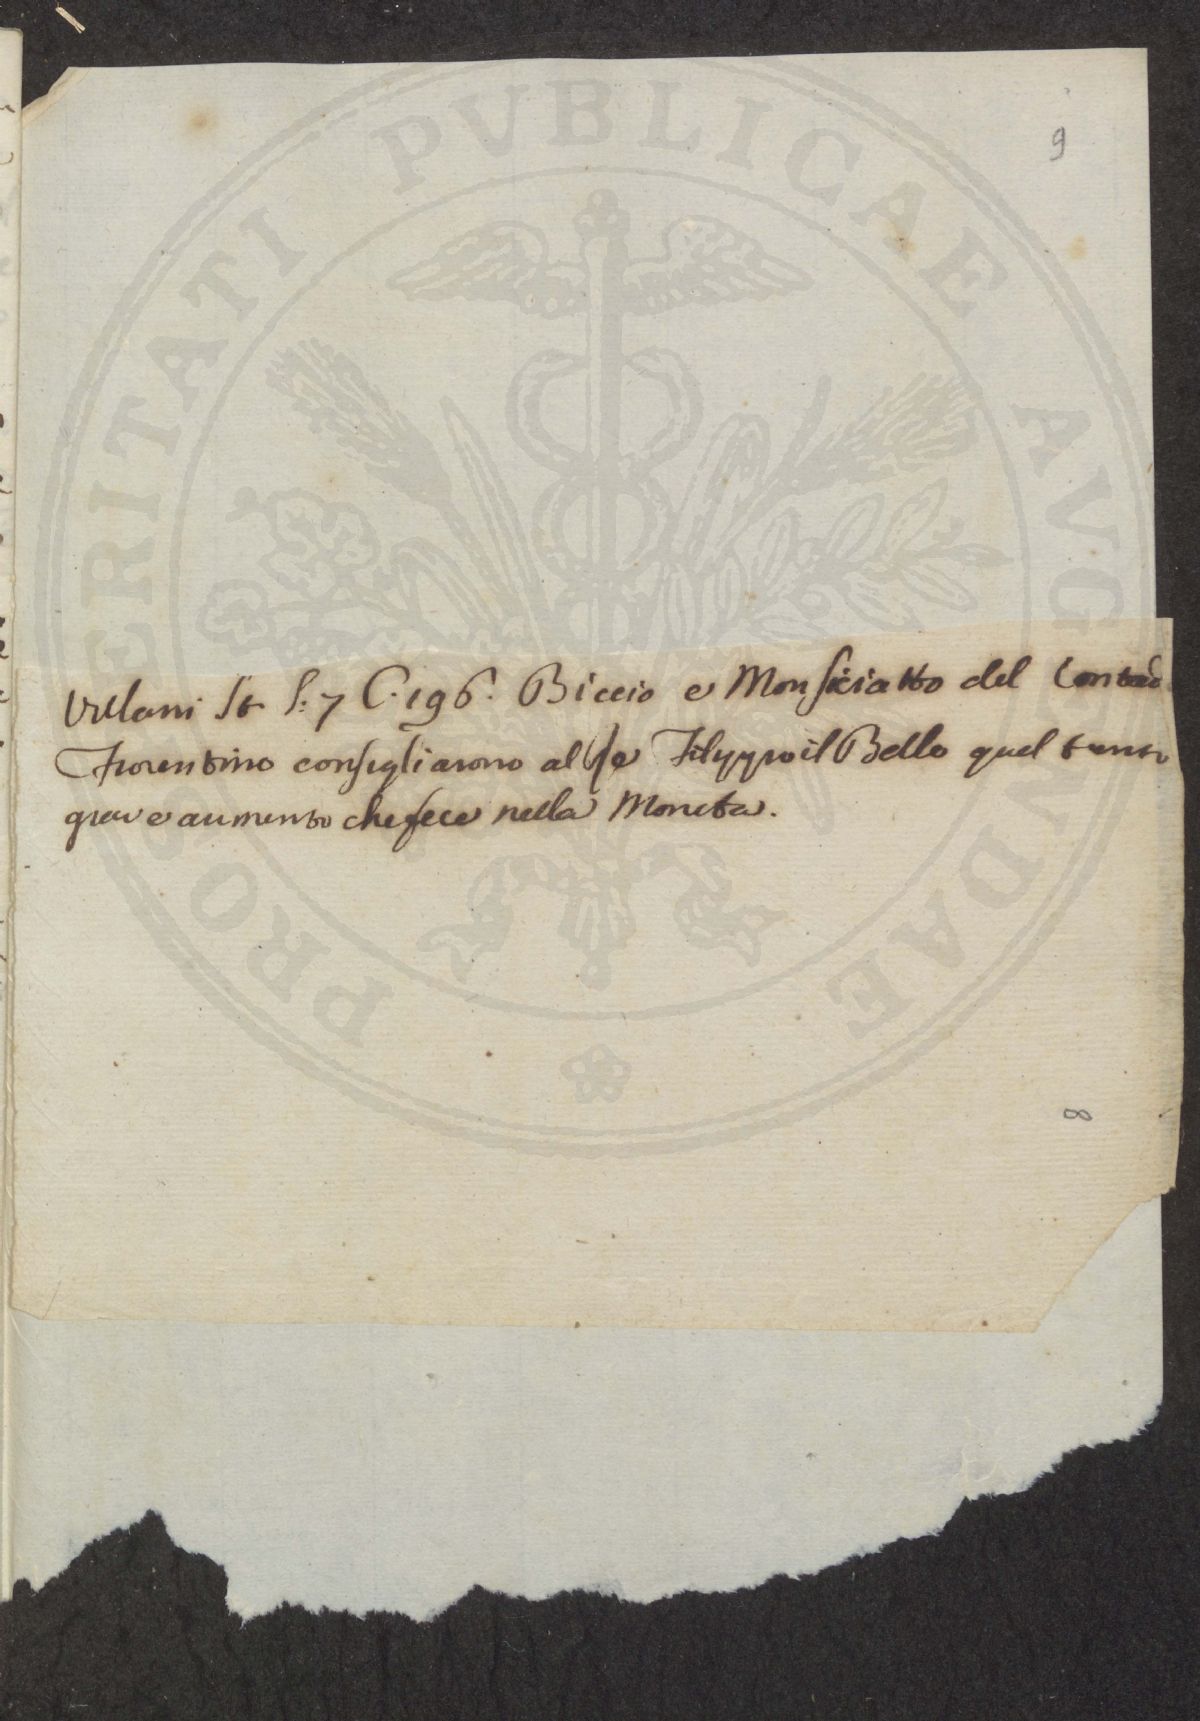 9
Villani St. l. 7 C. 196. Biccio e Monsiciatto del Contado
Fiorentino consigliarono al Re Filippo il Bello quel tanto
grave aumento che fece nella Moneta.
8
PROSPERITATI PVBLICAE AVGENDAE